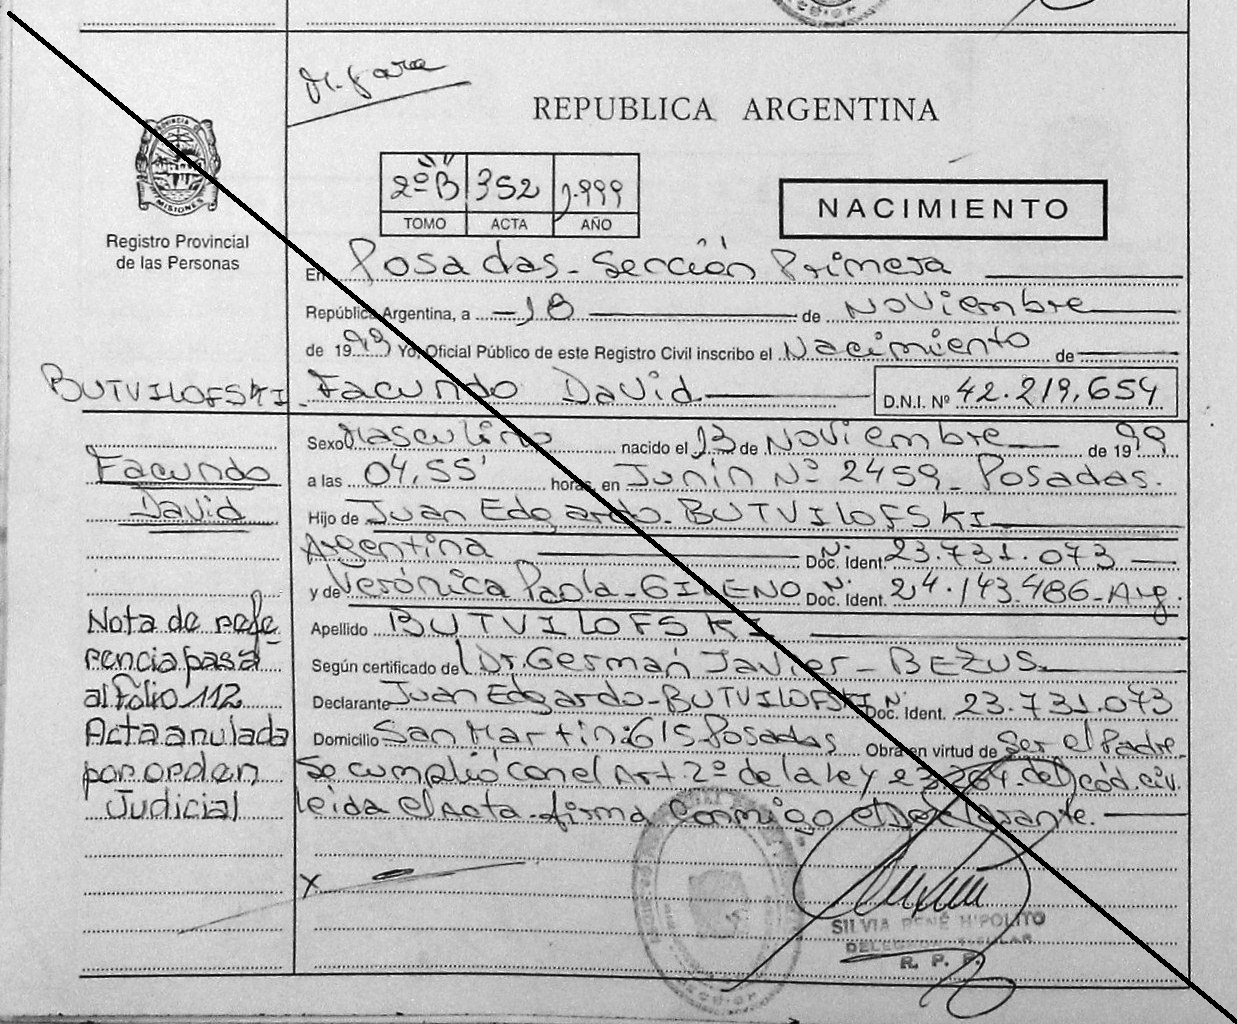 REPUBLICA ARGENTINA
PROVINCIA
MISIONES
Registro Provincial
de las Personas
2º "B" 352 1.999
TOMO ACTA AÑO
NACIMIENTO
En Posadas - Sección Primera
República Argentina, a - 18 de Noviembre
de 1999 Yo, Oficial Público de este Registro Civil inscribo el Nacimiento de
BUTVILOFSKI Facundo David D.N.I. Nº 42.219.654
Sexo Masculino nacido el 13 de Noviembre de 1999
Facundo
a las 04,55' horas, en Junín Nº 2459 - Posadas.
David
Hijo de Juan Edgardo - BUTVILOFSKI
Argentina Doc. Ident. Nº 23.731.073
y de Verónica Paola - GIMENO Doc. Ident. Nº 24.143.486 - Arg.
Nota de refe
Apellido BUTVILOFSKI
rencia pasa
Según certificado del Dr. Germán Javier - BEZUS.
al folio 112
Declarante Juan Edgardo - BUTVILOFSKI Doc. Ident. Nº 23.731.073
Acta anulada
Domicilio San Martin: 615 Posadas Obra en virtud de Ser el Padre
por orden
Se cumplió con el Art. 2º de la ley 23.264 del cód. civ.
Judicial
leida el acta - firma conmigo el Declarante.
X
SILVIA RENÉ HIPOLITO
DELEGADA TITULAR
R. P. P.